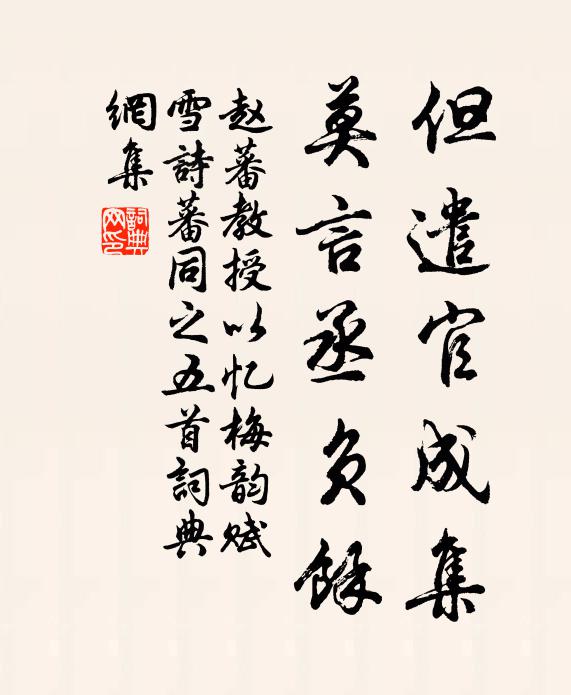 但遣官成集
莫言丞负馀
赵蕃教授以忆梅韵赋
雪詩蕃同之五首詞典
網集
詞典
网印